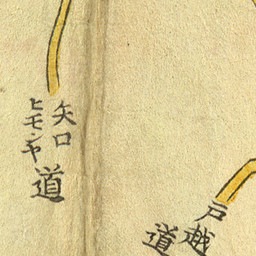 矢口
ヒモンヤ
道
戸越
道